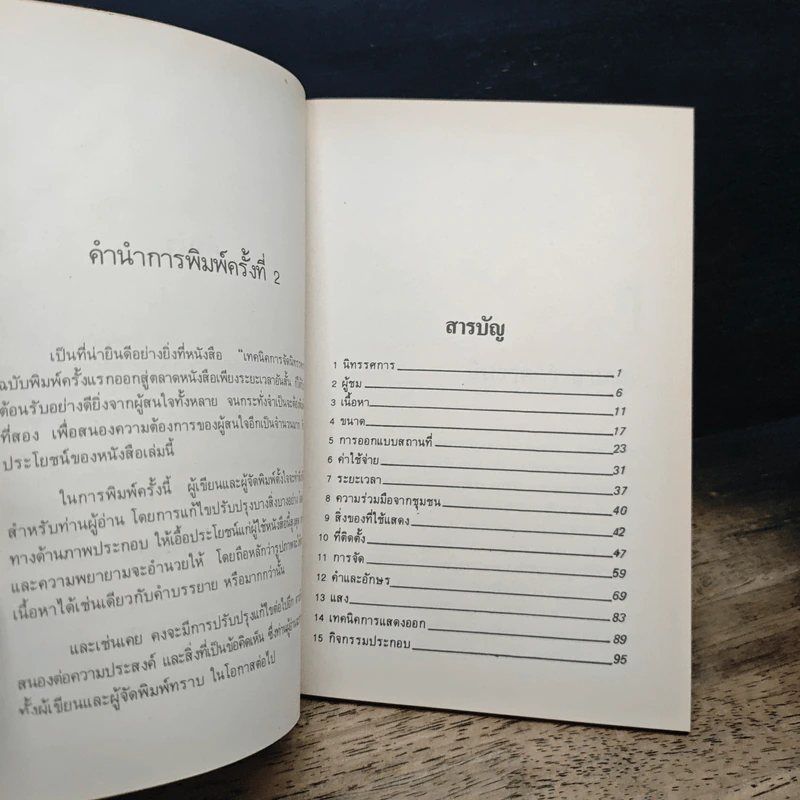 คำนำการพิมพ์ครั้งที่ 2
เป็นที่น่ายินดีอย่างยิ่งที่หนังสือ "เทคนิคการจัดนิทรรศ
ฉบับพิมพ์ครั้งแรกออกสู่ตลาดหนังสือเพียงระยะเวลาอันสั้น ก็ได้
ต้อนรับอย่างดียิ่งจากผู้สนใจทั้งหลาย จนกระทั่งจำเป็นจะต้อง
ที่สอง เพื่อสนองความต้องการของผู้สนใจอีกเป็นจำนวนมาก
ประโยชน์ของหนังสือเล่มนี้
ในการพิมพ์ครั้งนี้ ผู้เขียนและผู้จัดพิมพ์ตั้งใจจะทำ
สำหรับท่านผู้อ่าน โดยการแก้ไขปรับปรุงบางสิ่งบางอย่าง
ทางด้านภาพประกอบ ให้เอื้อประโยชน์แก่ผู้ใช้หนังสือนี้สูงสุด
และความพยายามจะอำนวยให้ โดยถือหลักว่ารูปภาพ
เนื้อหาได้เช่นเดียวกับคำบรรยาย หรือมากกว่านั้น
และเช่นเคย คงจะมีการปรับปรุงแก้ไขต่อไปอีก
สนองต่อความประสงค์ และสิ่งที่เป็นข้อคิดเห็น ซึ่งท่านผู้อ่าน
ทั้งผู้เขียนและผู้จัดพิมพ์ทราบ ในโอกาสต่อไป
สารบัญ
1 นิทรรศการ 1
2 ผู้ชม 6
3 เนื้อหา 11
4 ขนาด 17
5 การออกแบบสถานที่ 23
6 ค่าใช้จ่าย 31
7 ระยะเวลา 37
8 ความร่วมมือจากชุมชน 40
9 สิ่งของที่ใช้แสดง 42
10 ที่ติดตั้ง 47
11 การจัด 59
12 คำและอักษร 69
13 แสง 83
14 เทคนิคการแสดงออก 89
15 กิจกรรมประกอบ 95